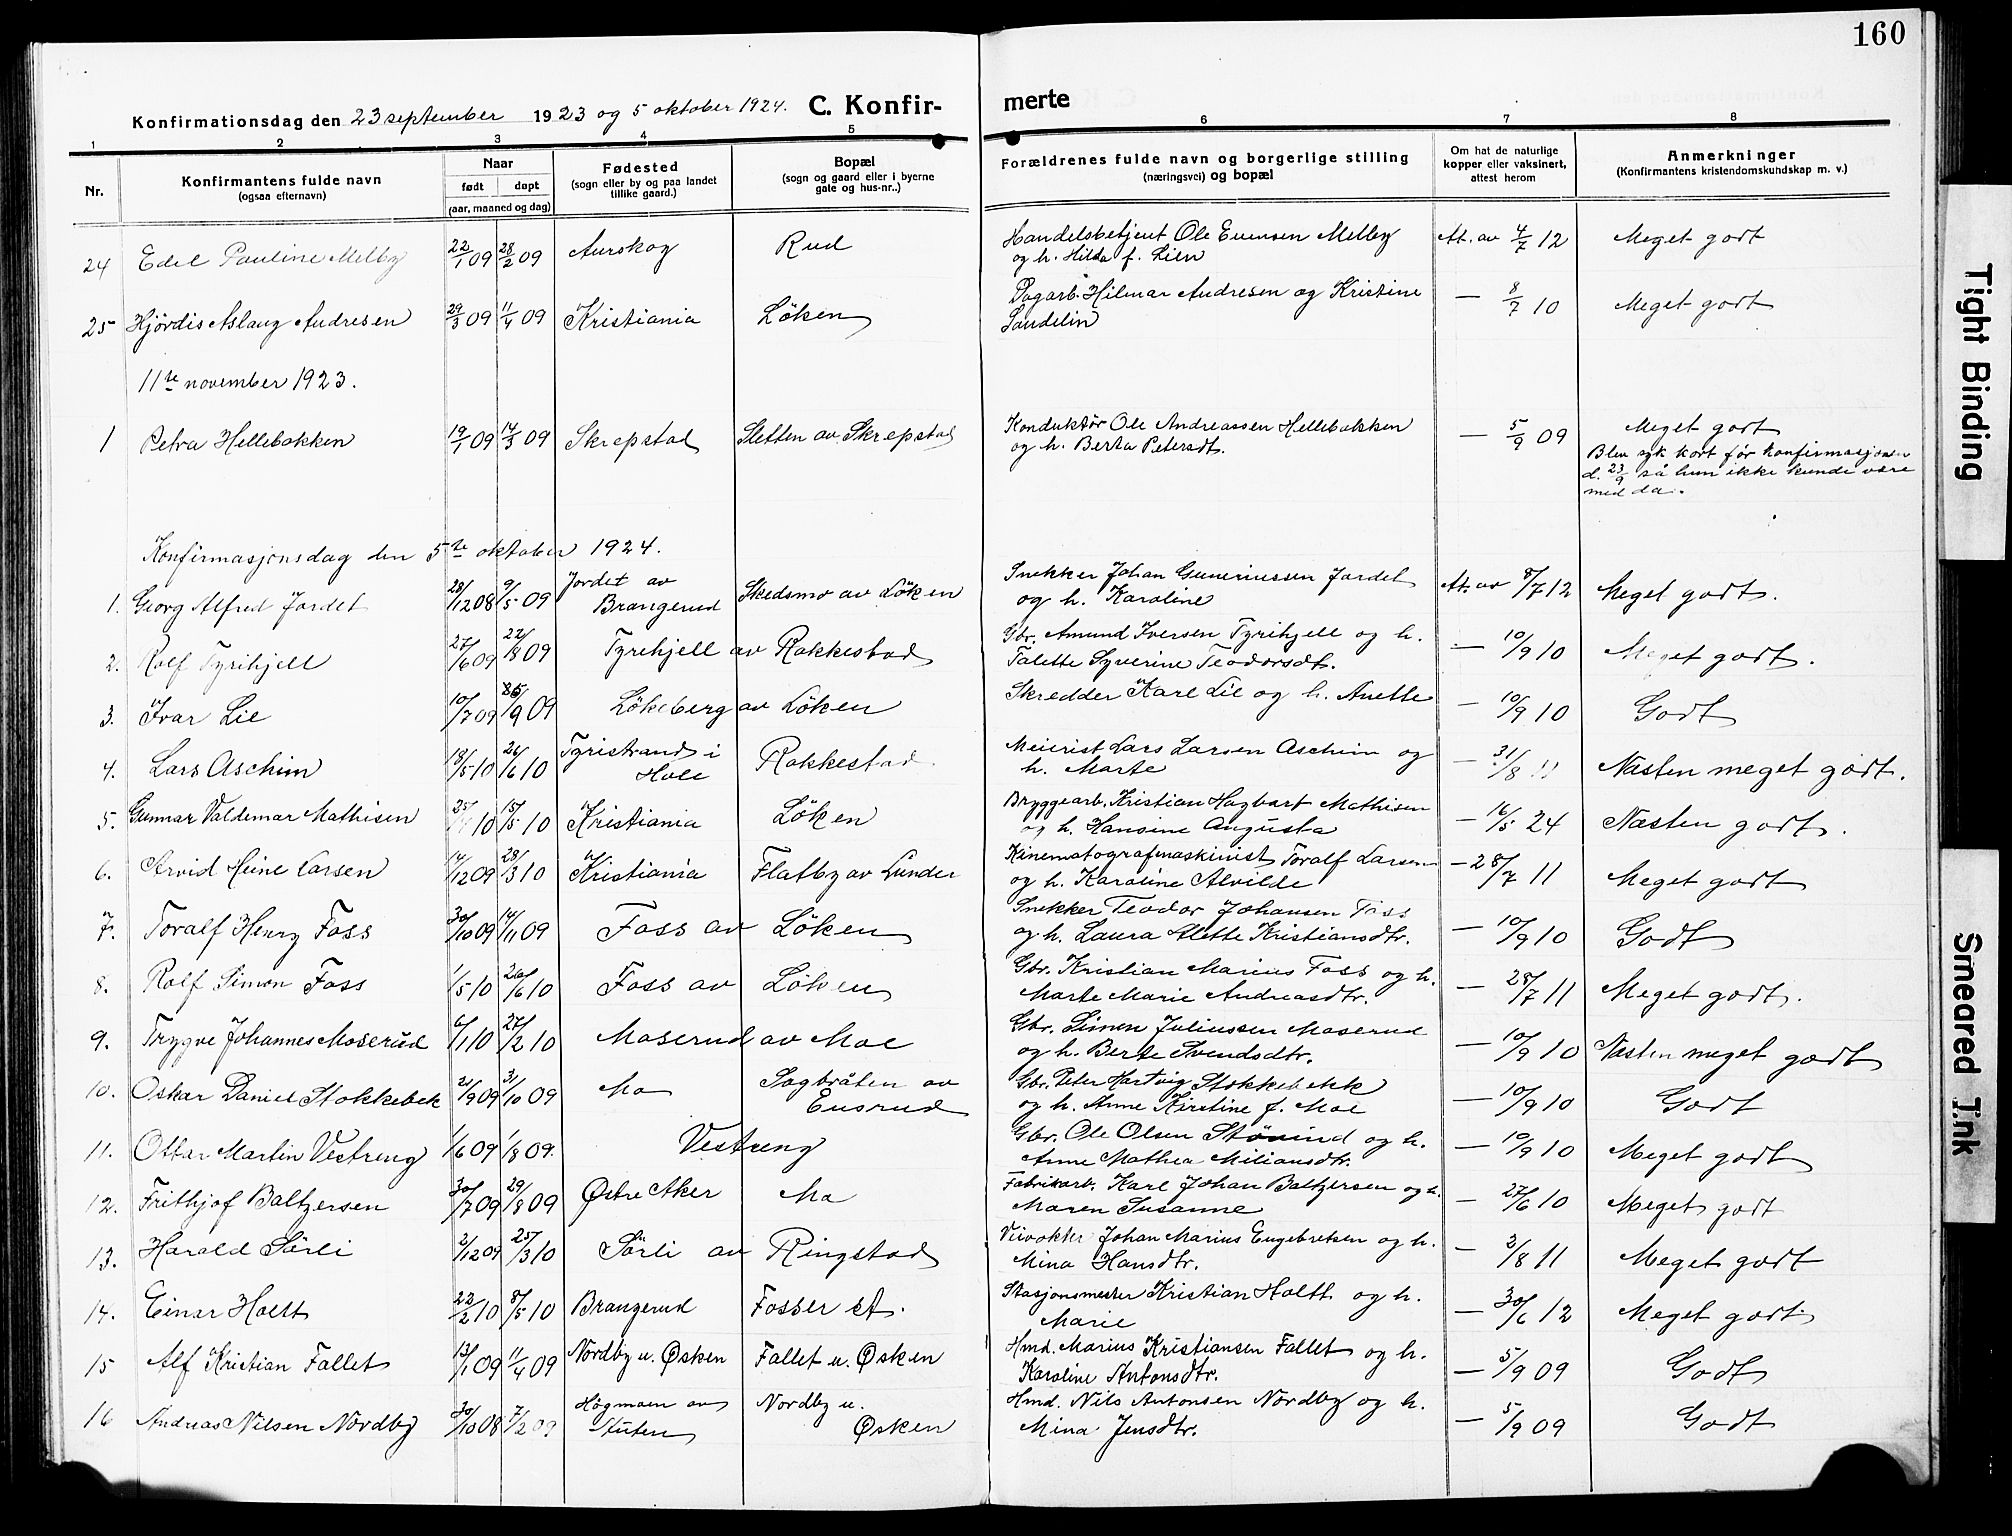 160
Konfirmationsdag den 23 september 1923 og 5 oktober 1924. C. Konfir-
merte
1 2 3 4 5 6 7 8
Nr. Konfirmantens fulde navn (ogsaa efternavn) Naar født døpt (aar, maaned og dag) Fødested (sogn eller by og paa landet tillike gaard.) Bopæl (sogn og gaard eller i byerne gate og hus-nr..) Forældrenes fulde navn og borgerlige stilling (næringsvei) og bopæl Om hat de naturlige kopper eller vaksinert, attest herom Anmerkninger (Konfirmantens kristendomskundskap m. v.)
24 Edel Pauline Melby 22/1 09 28/2 09 Aurskog Rud Handelsbetjent Ole Evensen Melby og h. Hilda f. Lien At. av 4/7 12 Meget godt
25 Hjördis Aslaug Andresen 29/3 09 11/4 09 Kristiania Löken Dagarb. Hilmar Andresen og Kristine Sandelin — 8/7 10 Meget godt
11te november 1923.
1 Petra Hellebakken 19/1 09 14/3 09 Skrepstad Sletten av Skrepstad Konduktör Ole Andreassen Hellebakken og h. Berta Petersdt. — 5/9 09 Meget godt
Blev syk kort før konfirmasjonen
d. 23/9 så hun ikke kunde være
med da.
Konfirmasjonsdag den 5te oktober 1924.
1. Georg Alfred Jordet 28/12 08 9/5 09 Jordet av Brangerud Skedsmo av Löken Snekker Johan Gunerinssen Jordet og h. Karoline At. av 8/7 12 Meget godt.
2. Rolf Tyrihjell 27/6 09 22/8 09 Tyrihjell av Rakkestad Gbr. Amund Iversen Tyrihjell og h. Talette Syverine Teodorsdt. — 10/9 10 Meget godt.
3. Ivar Lie 10/7 09 5/9 09 Lökeberg av Löken Skredder Karl Lie og h. Anette — 10/9 10 Godt
4. Lars Aschim 13/5 10 26/6 10 Tyristrand i Hole Rakkestad Meierist Lars Larsen Aschim og h. Marte — 31/8 11 Næsten meget godt.
5. Gunnar Valdemar Mathisen 25/ 10 15/5 10 Kristiania Löken Bryggearb. Kristian Hagbart Mathisen og h. Hansine Augusta — 16/5 24 Næsten godt.
6. Arvid Heine Larsen 14/12 09 28/3 10 Kristiania Flatby av Lunder Kinematografmaskinist Toralf Larsen og h. Karoline Alvilde — 28/7 11 Meget godt
7. Toralf Henry Foss 30/10 09 14/11 09 Foss av Löken Snekker Teodor Johansen Foss og h. Laura Alette Kristiansdtr. — 10/9 10 Godt
8. Rolf Simon Foss 1/5 10 26/6 10 Foss av Löken Gbr. Kristian Marius Foss og h. Marte Marie Andreasdtr. — 28/7 11 Meget godt.
9. Trygve Johannes Moserud 6/1 10 27/2 10 Moserud av Moe Gbr. Simen Juliussen Moserud og h. Berte Svendsdtr. — 10/9 10 Næsten meget godt
10. Oskar Daniel Stokkebek 21/9 09 31/10 09 Mo Sagbråten av Eusrud Gbr. Peter Hartvig Stokkebekk og h. Anne Kirstine f. Moe — 10/9 10 Godt
11. Ottar Martin Vestreng 1/6 09 1/8 09. Vestreng Gbr. Ole Olsen Stövind og h. Anne Mathea Miliansdtr. — 10/9 10 Meget godt
12. Frithjof Baltzersen 30/7 09 29/8 09 Østre Aker Mo Fabrikarb. Karl Johan Baltzersen og h. Maren Susanne — 27/6 10 Meget godt
13. Harald Sörli 2/12 09 25/3 10 Sörli av Ringstad Veivokter Johan Marius Engebretsen og h. Mina Hansdtr. — 2/8 11 Meget godt
14. Einar Holtt 22/2 10 8/5 10 Brangerud Fosser st. Stasjonsmester Kristian Holtt og h. Marie — 30/6 12 Meget godt.
15 Alf Kristian Fallet 13/1 09 11/4 09 Nordby u. Øsken Fallet u. Øsken Hmd. Marius Kristiansen Fallet og h. Karoline Antonsdtr. — 5/9 09 Godt
16 Andreas Nilsen Nordby 30/10 08 7/2 09 Högmoen av Stuten Nordby u. Øsken Hmd. Nils Antonsen Nordby og h. Mina Jensdtr. — 5/9 09 Godt
Tight Binding
Smeared Ink